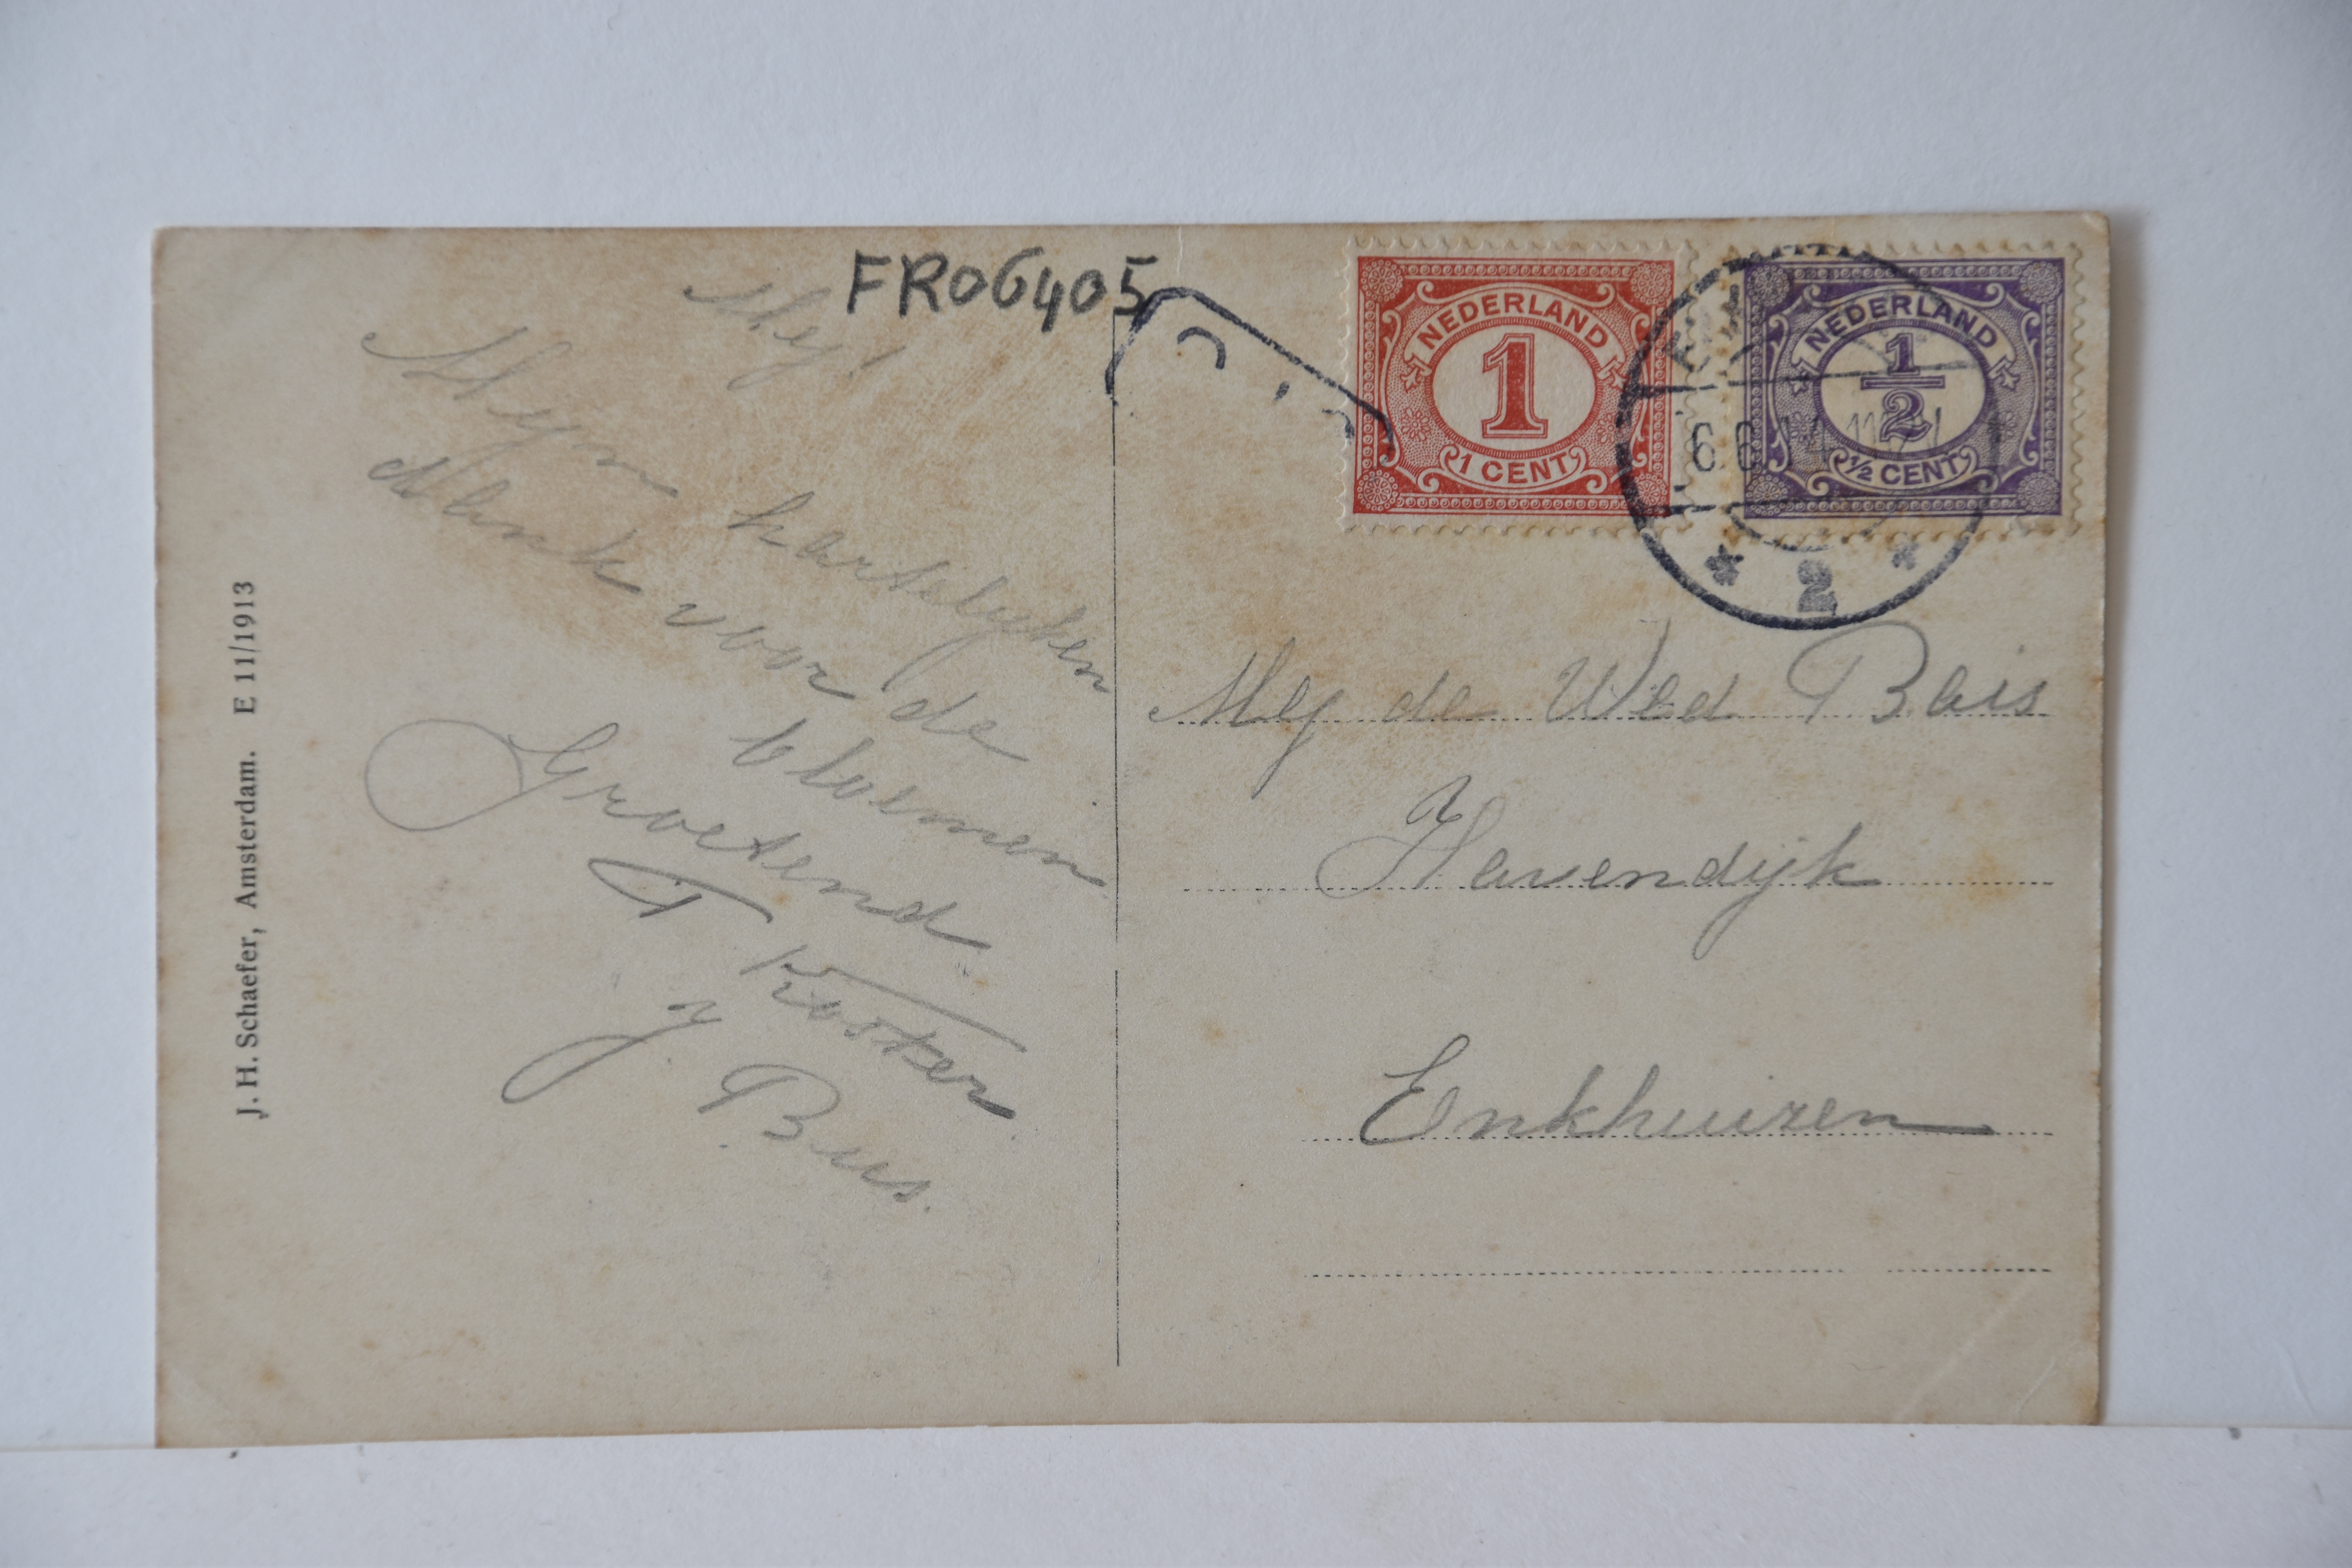 FR06405
Mej!
Mijn hartelyken
dank voor de
bloemen
Groetend
T Kooker
J. Bus.
J. H. Schaefer, Amsterdam. E 11/1913
NEDERLAND
1
1 CENT
NEDERLAND
1/2
1/2 CENT
2
Mej de Wed Buis
Havendijk
Enkhuizen